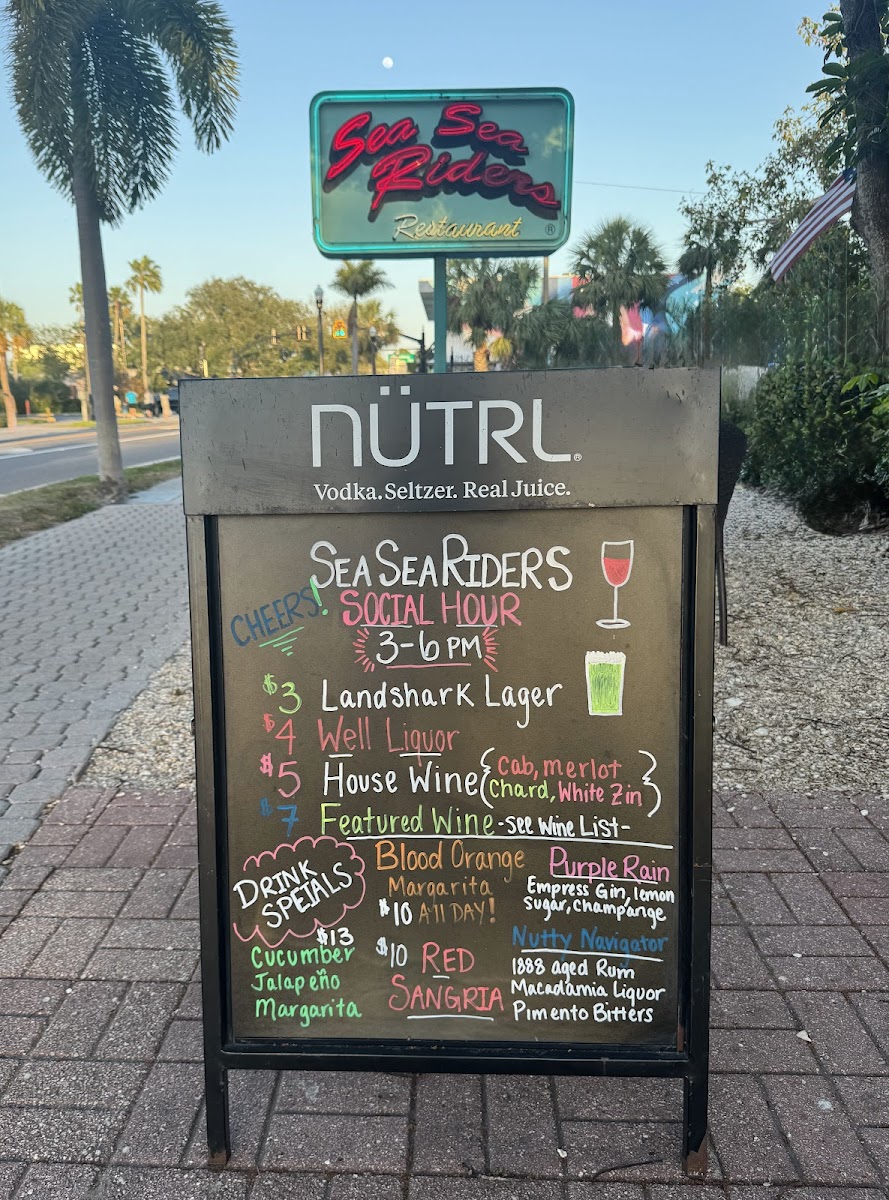 Sea Sea
Riders
Restaurant ®
nÜTRL®
Vodka. Seltzer. Real Juice.
SEA SEA RIDERS
CHEERS!
SOCIAL HOUR
3-6 PM
$3 Landshark Lager
$4 Well Liquor
$5 House Wine (Cab, merlot
Chard, White Zin)
$7 Featured Wine -See Wine List-
DRINK
SPEIALS
$13
Cucumber
Jalapeño
Margarita
Blood Orange
Margarita
$10 All DAY!
$10 RED
SANGRIA
Purple Rain
Empress Gin, lemon
sugar, champange
Nutty Navigator
1888 aged Rum
Macadamia Liquor
Pimento Bitters